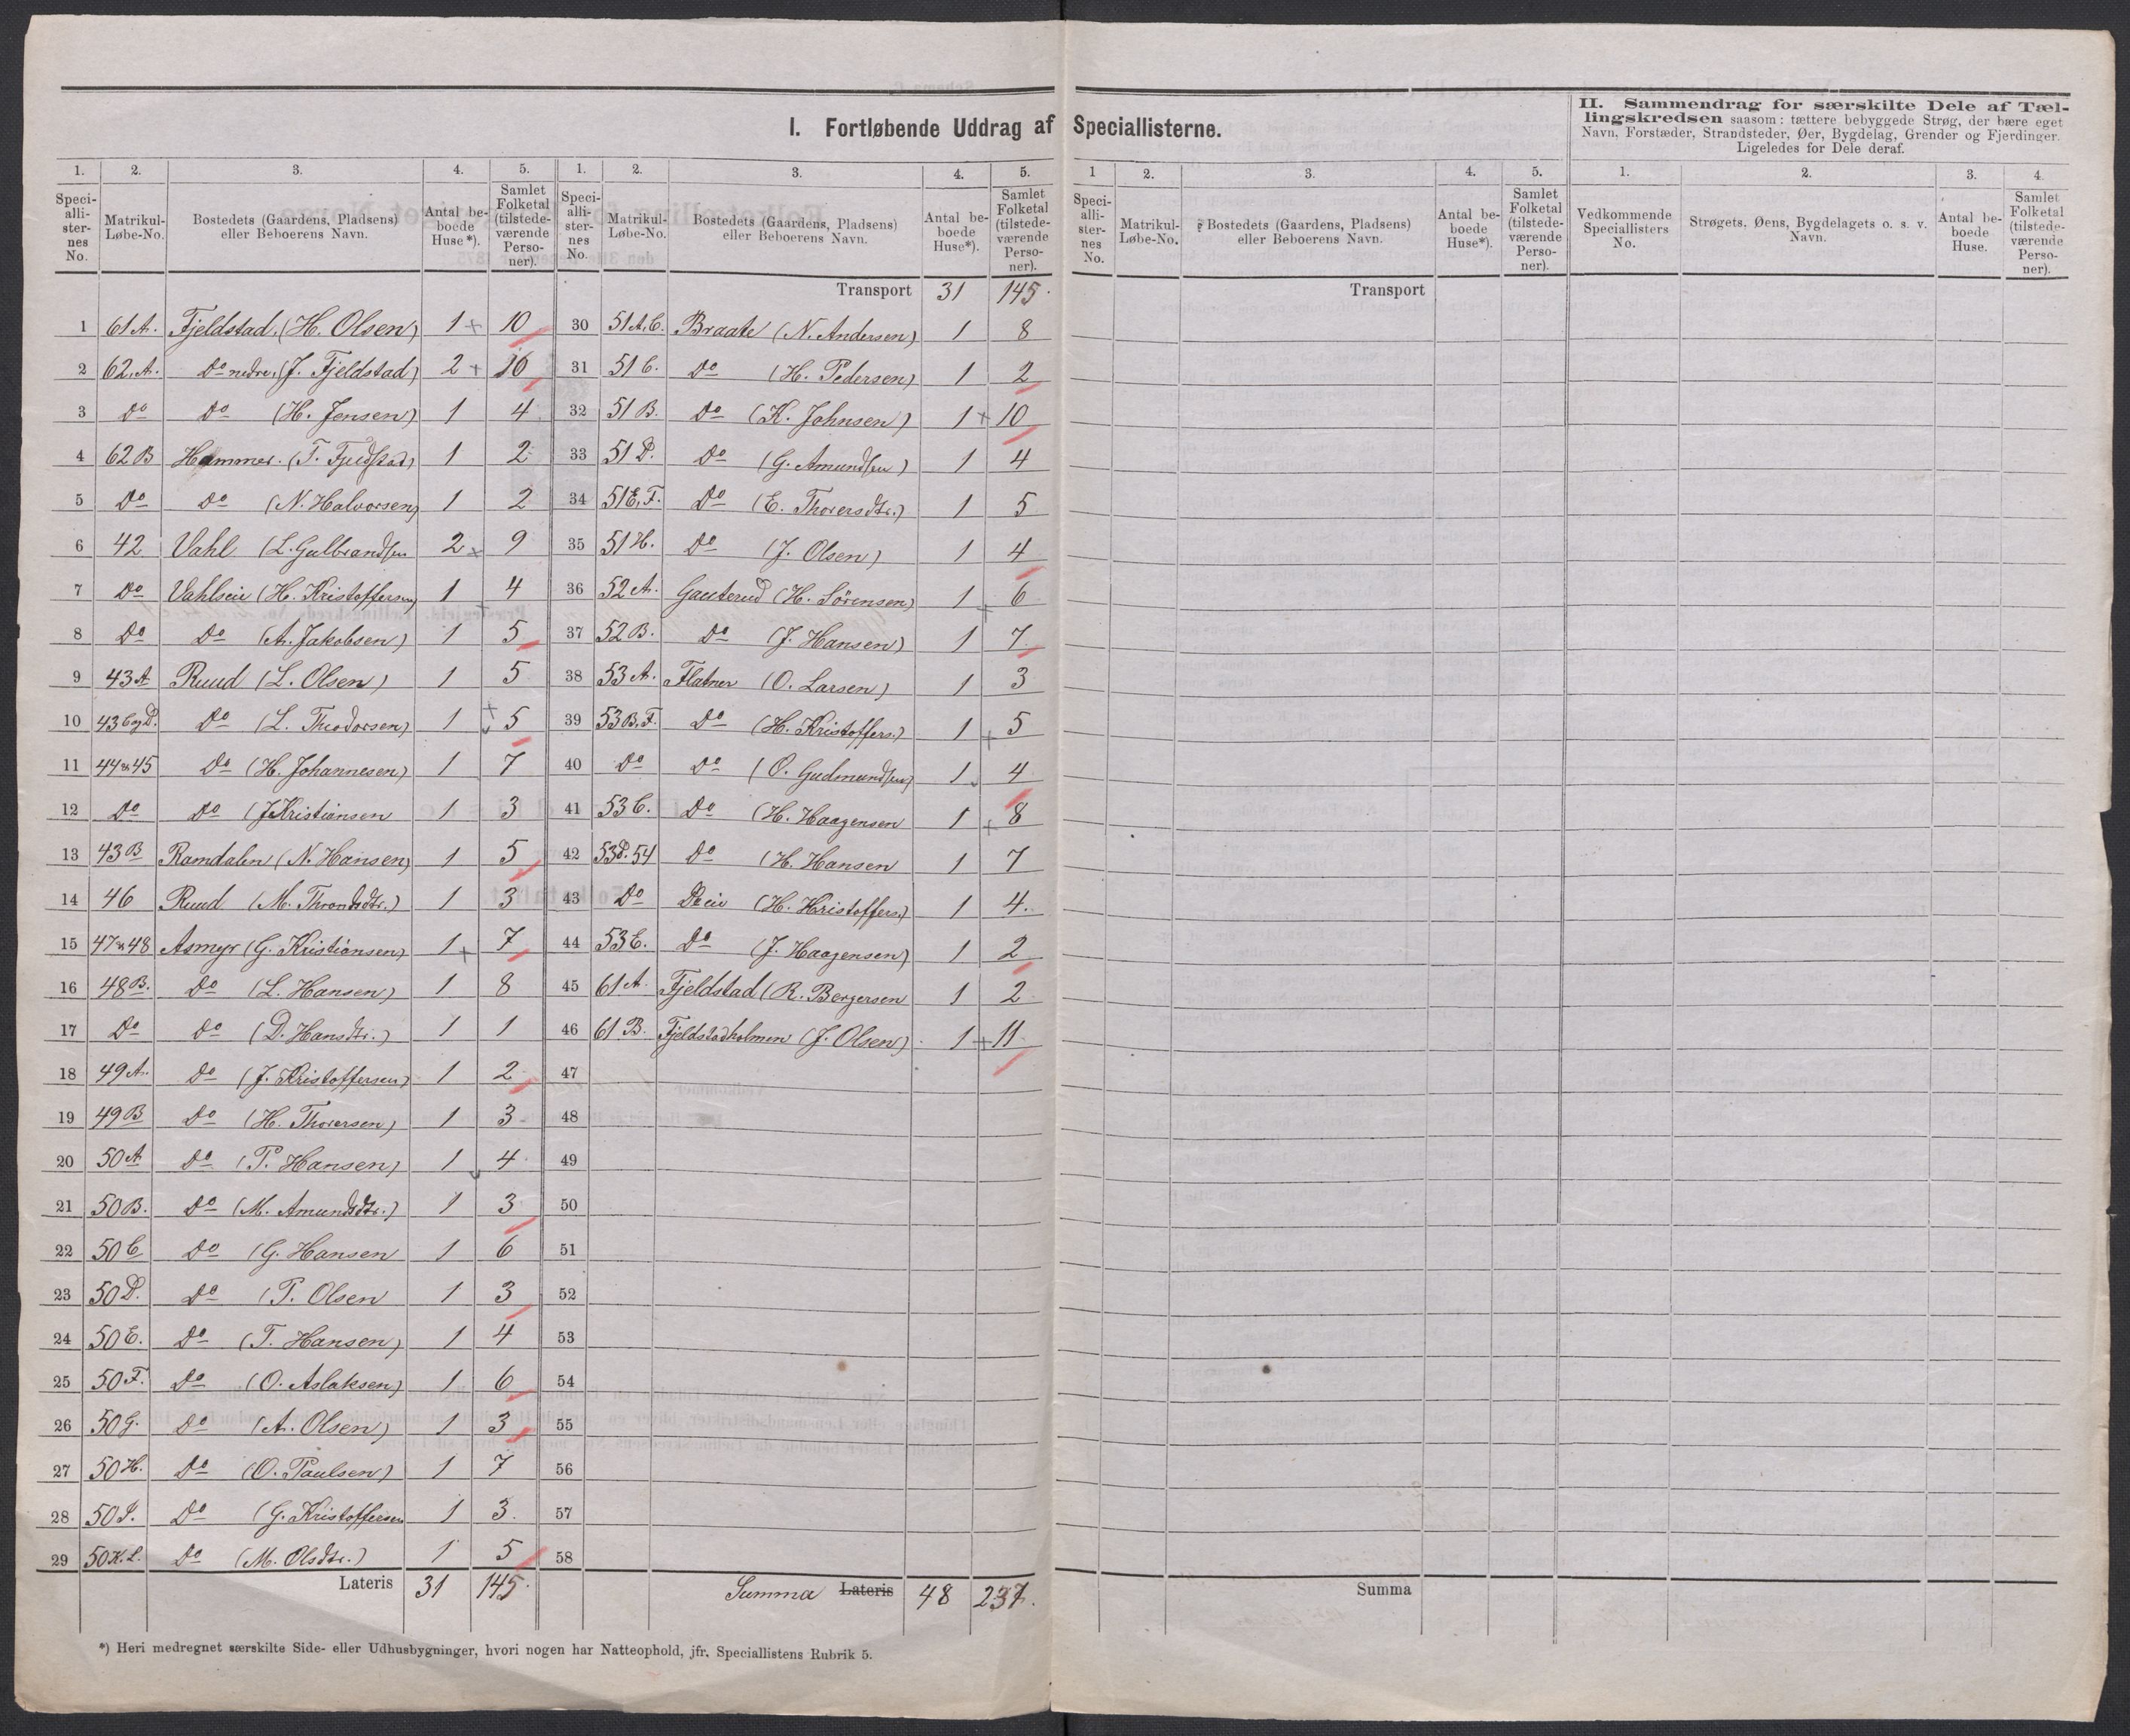 I. Fortløbende Uddrag af Speciallisterne.
II. Sammendrag for særskilte Dele af Tæl-
lingskredsen saasom: tættere bebyggede Strøg, der bære eget
Navn, Forstæder, Strandsteder, Øer, Bygdelag, Grender og Fjerdinger.
Ligeledes for Dele deraf.
1. 2. 3. 4. 5.
Speci-alli-ster-nes No. Matrikul-Løbe-No. Bostedets (Gaardens, Pladsens) eller Beboerens Navn. Antal be-boede Huse*). Samlet Folketal (tilstede-værende Perso-ner).
1 61 A. Fjeldstad. (H. Olsen) 1 + 10
2 62, A. Do nedre, (J. Fjeldstad) 2 + 16
3 Do Do (H. Jensen) 1 4
4 62 B Hammer. (T. Fjeldstad) 1 2
5 Do Do (N. Halvorsen) 1 2
6 42 Vahl (L. Gulbrandsen 2 + 9
7 Do Vahlseie (H. Kristoffersen) 1 4
8 Do Do (A. Jakobsen) 1 5
9 43 A Ruud (L. Olsen) 1 5
10 43 C og D. Do (L. Theodorsen) 1 + 5
11 44 & 45 Do (H. Johannesen) 1 7
12 Do Do (J Kristiansen 1 3
13 43 B Ramdalen (N. Hansen) 1 5
14 46 Ruud (M. Throndsdtr.) 1 3
15 47 & 48 Asmyr (G. Kristiansen) 1 + 7
16 48 B. Do (L. Hansen) 1 8
17 Do Do (D. Hansdtr.) 1 1
18 49 A. Do (J. Kristoffersen) 1 2
19 49 B Do (H. Thorersen) 1 3
20 50 A Do (P. Hansen) 1 4
21 50 B. Do (M. Amundsdtr.) 1 3
22 50 C Do (G. Hansen 1 6
23 50 D. Do (P. Olsen 1 3
24 50 E. Do (T. Hansen) 1 4
25 50 F. Do (O. Aslaksen) 1 6
26 50 G. Do (A. Olsen) 1 3
27 50 H. Do (O. Paulsen) 1 7
28 50 I. Do (G. Kristoffersen 1 3
29 50 K. L. Do (M. Olsdtr.) 1 5
Lateris 31 145.
1. 2. 3. 4. 5.
Speci-alli-ster-nes No. Matrikul-Løbe-No. Bostedets (Gaardens, Pladsens) eller Beboerens Navn. Antal be-boede Huse*). Samlet Folketal (tilstede-værende Perso-ner).
Transport 31 145.
30 51 A, C. Braate (N. Andersen) 1 8
31 51 C. Do (H. Pedersen) 1 2
32 51 B. Do (K. Johnsen) 1 + 10
33 51 D. Do (G. Amundsen) 1 4
34 51 E, F. Do (E. Thorersdtr.) 1 5
35 51 H. Do (J. Olsen) 1 4
36 52 A. Gauterud (H. Sörensen) 1 + 6
37 52 B. Do (J. Hansen) 1 7
38 53 A. Flatner (O. Larsen) 1 3
39 53 B. F. Do (H. Kristoffers.) 1 + 5
40 Do Do (O. Gudmundsen) 1 4
41 53 C. Do (H. Haagensen 1 + 8
42 53 D. 54 Do (H. Hansen 1 7
43 Do Do eie (H. Kristoffers.) 1 4.
44 53 E. Do (J. Haagensen) 1 2
45 61 A Fjeldstad (R. Bergersen 1 2
46 61 B. Fjeldstadholmen (J. Olsen) 1 + 11
47
48
49
50
51
52
53
54
55
56
57
58
Summa Lateris 48 237.
1 2. 3. 4. 5.
Speci-alli-ster-nes No. Matrikul-Løbe-No. Bostedets (Gaardens, Pladsens) eller Beboerens Navn. Antal be-boede Huse*). Samlet Folketal (tilstede-værende Perso-ner).
Transport
Summa
1. 2. 3. 4.
Vedkommende Speciallisters No. Strøgets, Øens, Bygdelagets o. s. v. Navn. Antal be-boede Huse. Samlet Folketal (tilstede-værende Perso-ner).
*) Heri medregnet særskilte Side- eller Udhusbygninger, hvori nogen har Natteophold, jfr. Speciallistens Rubrik 5.